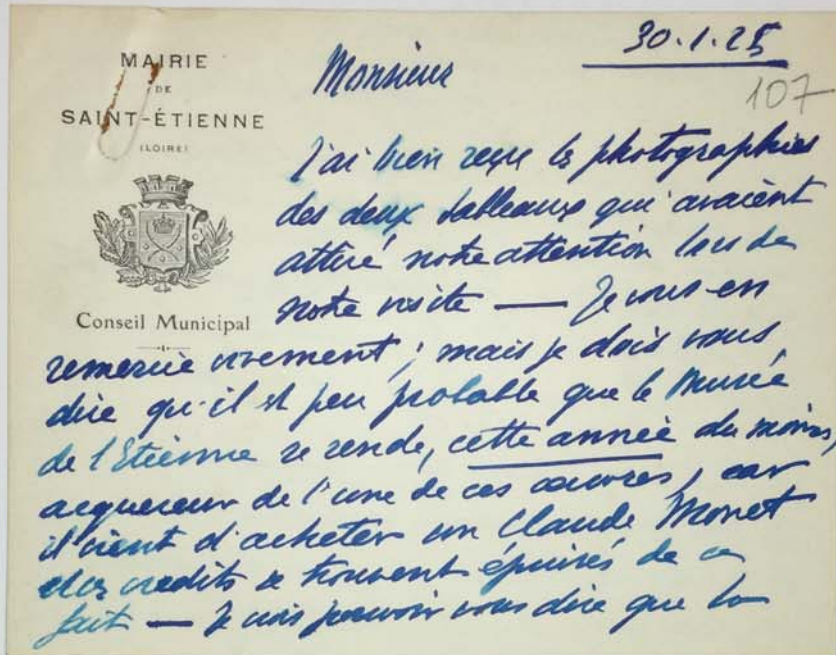 MAIRIE
DE
SAINT-ÉTIENNE
(LOIRE)
Conseil Municipal
30.1.25
107
Monsieur
J'ai bien reçu les photographies
des deux tableaux qui avaient
attiré notre attention lors de
notre visite — Je vous en
remercie vivement ; mais je dois vous
dire qu'il est peu probable que le Musée
de St Etienne se rende, cette année du moins,
acquereur de l'une de ces œuvres, car
il vient d'acheter un Claude Monet
et les credits se trouvent épuisés de ce
fait — Je crois pouvoir vous dire que la